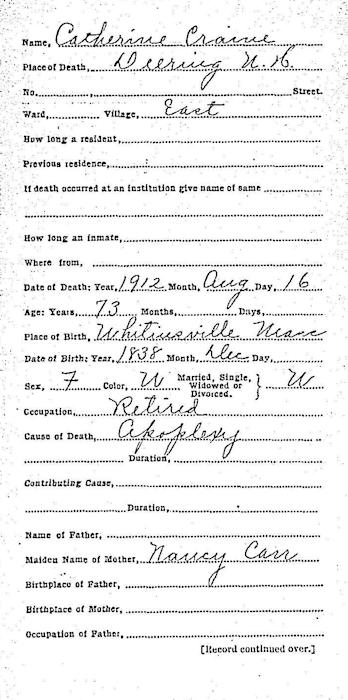 Name, Catherine Craine
Place of Death, Deering N.H.
No. Street.
Ward, Village, East
How long a resident,
Previous residence,
If death occurred at an institution give name of same
How long an inmate,
Where from,
Date of Death: Year, 1912 Month, Aug Day, 16
Age: Years, 73 Months, Days,
Place of Birth, Whitinsville Mass
Date of Birth: Year, 1838 Month, Dec Day,
Sex, F Color, W Married, Single, Widowed or Divorced. } W
Occupation, Retired
Cause of Death, Apoplexy
Duration,
Contributing Cause,
Duration,
Name of Father,
Maiden Name of Mother, Nancy Carr
Birthplace of Father,
Birthplace of Mother,
Occupation of Father,
[Record continued over.]